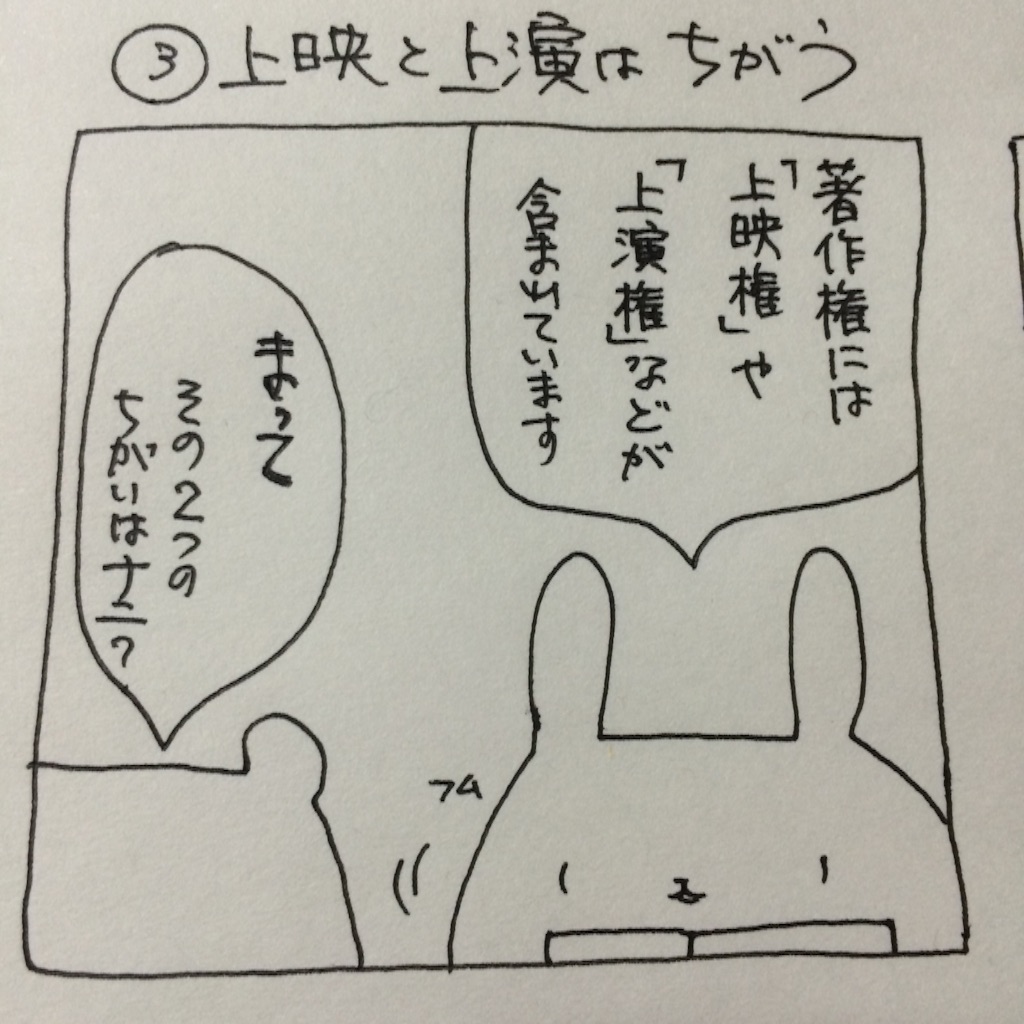 ③上映と上演はちがう
著作権には
「上映権」や
「上演権」などが
含まれています
まって
その2つの
ちがいはナニ?
フム